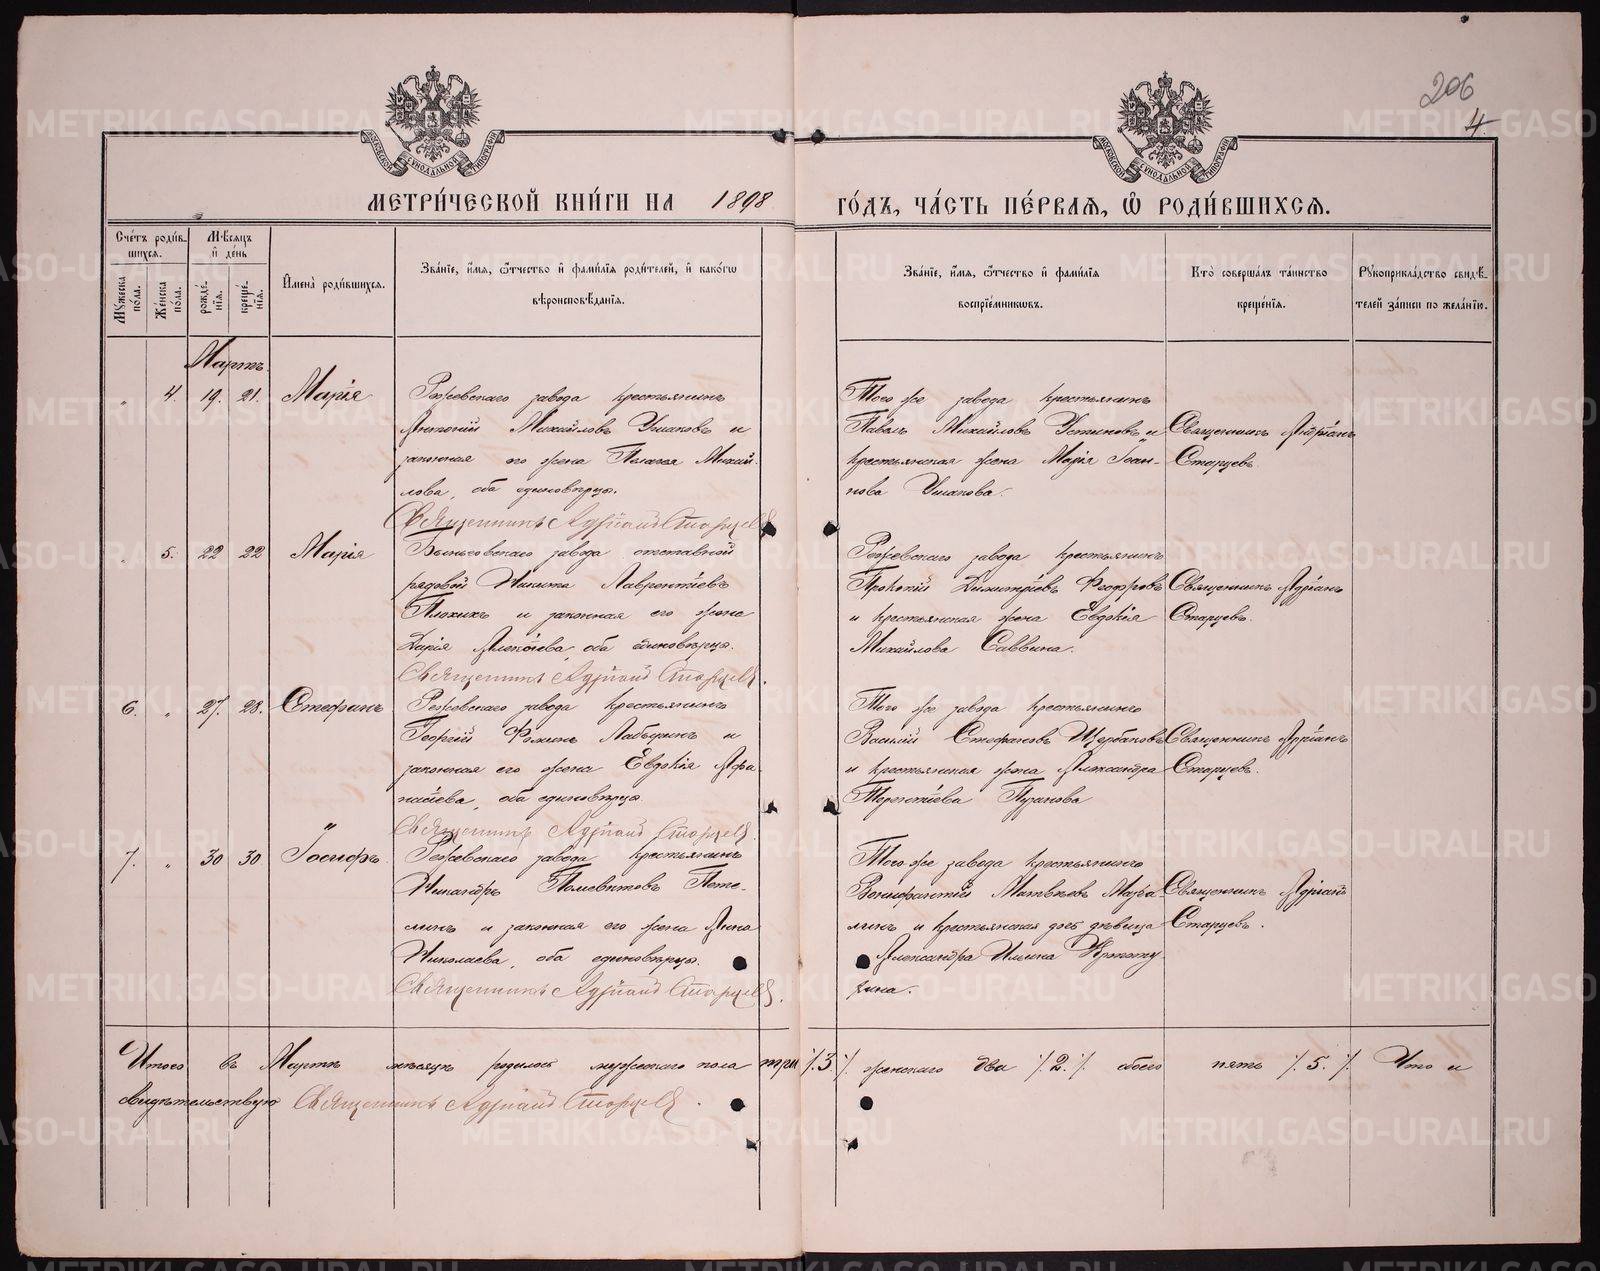 206
4
МОСКОВСКОЙ СУНОДАЛЬНОЙ ТИПОГРАФІИ
МОСКОВСКОЙ СУНОДАЛЬНОЙ ТИПОГРАФІИ
МЕТРИ́ЧЕСКОЙ КНИ́ГИ НА 1898 ГО́ДЪ, ЧА́СТЬ ПЕ́РВАѦ, Ѽ РОДИ́ВШИХСѦ.
Сче́тъ роди́в-
шихсѧ.
Мѣсѧцъ
и҆ де́нь
Мꙋжеска по́ла.
Же́нска по́ла.
рожде́-
нїѧ.
креще́-
нїѧ.
И҆мена̀ роди́вшихсѧ.
Зва́нїе, и҆́мѧ, ѻ҆́тчество и҆ фами́лїѧ роди́телей, и҆ како́гѡ
вѣроисповѣ́данїѧ.
Зва́нїе, и҆́мѧ, ѻ҆́тчество и҆ фами́лїѧ
воспрїе́мникѡвъ.
Кто̀ соверша́лъ та́инство
креще́нїѧ.
Рꙋкоприкла́дство свидѣ́-
телей за́писи по жела́нїю.
Мартъ.
„ 4. 19. 21. Марія
Режевскаго завода крестьянинъ
Антоній Михайловъ Ушаковъ и
законная его жена Пелагея Михай-
лова, оба единовѣрцы.
Священникъ Адріанъ Старцевъ
Того же завода крестьянинъ
Павелъ Михайловъ Устиновъ и
крестьянская жена Марія Іоан-
нова Ушакова.
Священникъ Адріанъ
Старцевъ.
„ 5. 22 22 Марія
Быньговскаго завода отставной
рядовой Никита Лаврентіевъ
Плохихъ и законная его жена
Дарія Алексіева, оба единовѣрцы.
Священникъ Адріанъ Старцевъ.
Режевскаго завода крестьянинъ
Прокопій Димитріевъ Феодоровъ
и крестьянская жена Евдокія
Михайлова Саввина.
Священникъ Адріанъ
Старцевъ.
6. „ 27. 28. Стефанъ
Режевскаго завода крестьянинъ
Георгій Фоминъ и
законная его жена Евдокія Афа-
насіева, оба единовѣрцы
Священникъ Адріанъ Старцевъ.
Того же завода крестьянинъ
Василій Стефановъ Щербаковъ
и крестьянская жена Александра
Терентіева Пузанова
Священникъ Адріанъ
Старцевъ.
7. „ 30 30 Іосифъ
Режевскаго завода крестьянинъ
Никандръ Полиевктовъ Поте-
шинъ и законная его жена Анна
Николаева, оба единовѣрцы.
Священникъ Адріанъ Старцевъ.
Того же завода крестьянинъ
Вонифантій Матвѣевъ
и крестьянская дѣвица
Александра Ильина
зина.
Священникъ Адріанъ
Старцевъ.
Итого въ Мартѣ мѣсяцѣ родилось мужескаго пола три ./.3./. женскаго два ./.2./. обоего пять ./.5./. Что и
свидѣтельствую Священникъ Адріанъ Старцевъ.
METRIKI.GASO-URAL.RU